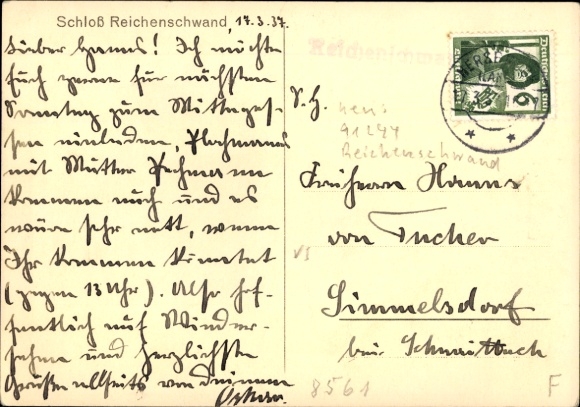 Schloß Reichenschwand, 17.3.37.
Lieber Hanns! Ich möchte
Euch gerne für nächsten
Samstag zum Mittages-
sen einladen,
mit Mutter
kommen auch und es
wäre sehr nett, wenn
Ihr kommen könntet
(gegen 13 Uhr). Also hof-
fentlich auf Wieder-
sehen und herzlichste
Grüße allseits von Deinem
Oskar.
Reichenschwand
S. H.
neu:
91244
Reichenschwand
Freiherrn Hanns
von Tucher
Simmelsdorf
bei Schnaittach
VS
8561
F
6